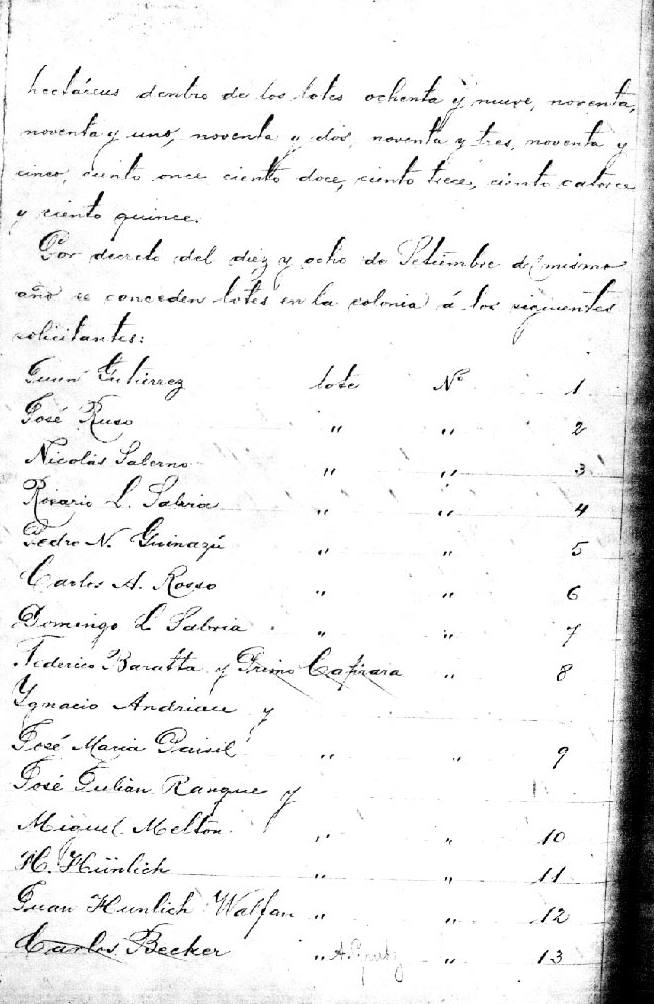 hectáreas dentro de los lotes ochenta y nueve, noventa,
noventa y uno, noventa y dos, noventa y tres, noventa y
cinco, ciento once ciento doce, ciento trece, ciento catorce
y ciento quince.
Por decreto del diez y ocho de Setiembre del mismo
año se conceden lotes en la colonia á los siguientes
solicitantes:
Juan Gutiérrez lote Nº 1
José Ruso " " 2
Nicolás Salerno " " 3
Rosario L. Sabria " " 4
Pedro N. Guinazú " " 5
Carlos A. Rosso " " 6
Domingo L. Sabria " " 7
Federico Baratta y Primo Caprara " 8
Ygnacio Andrieu y
José Maria Paisil " " 9
José Julián Ranque y
Miguel Melton " " 10
H. Hünlich " " 11
Juan Hunlich Walfan " " 12
Carlos Becker " " 13